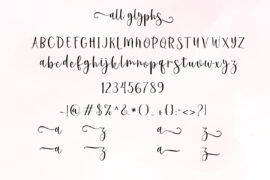 all glyphs
ABCDEFGHIJKLMNOPQRSTUVWXYZ
abcdefghijklmnopqrstuvwxyz
123456789
-!@#$%^&*()_+{}:"<>?|
a z a z
a z a z